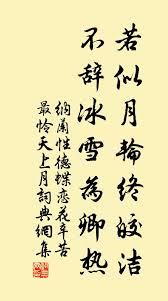 若似月輪終皎洁
不辞冰雪為卿热
納蘭性德蝶恋花辛苦
最怜天上月詞典網集